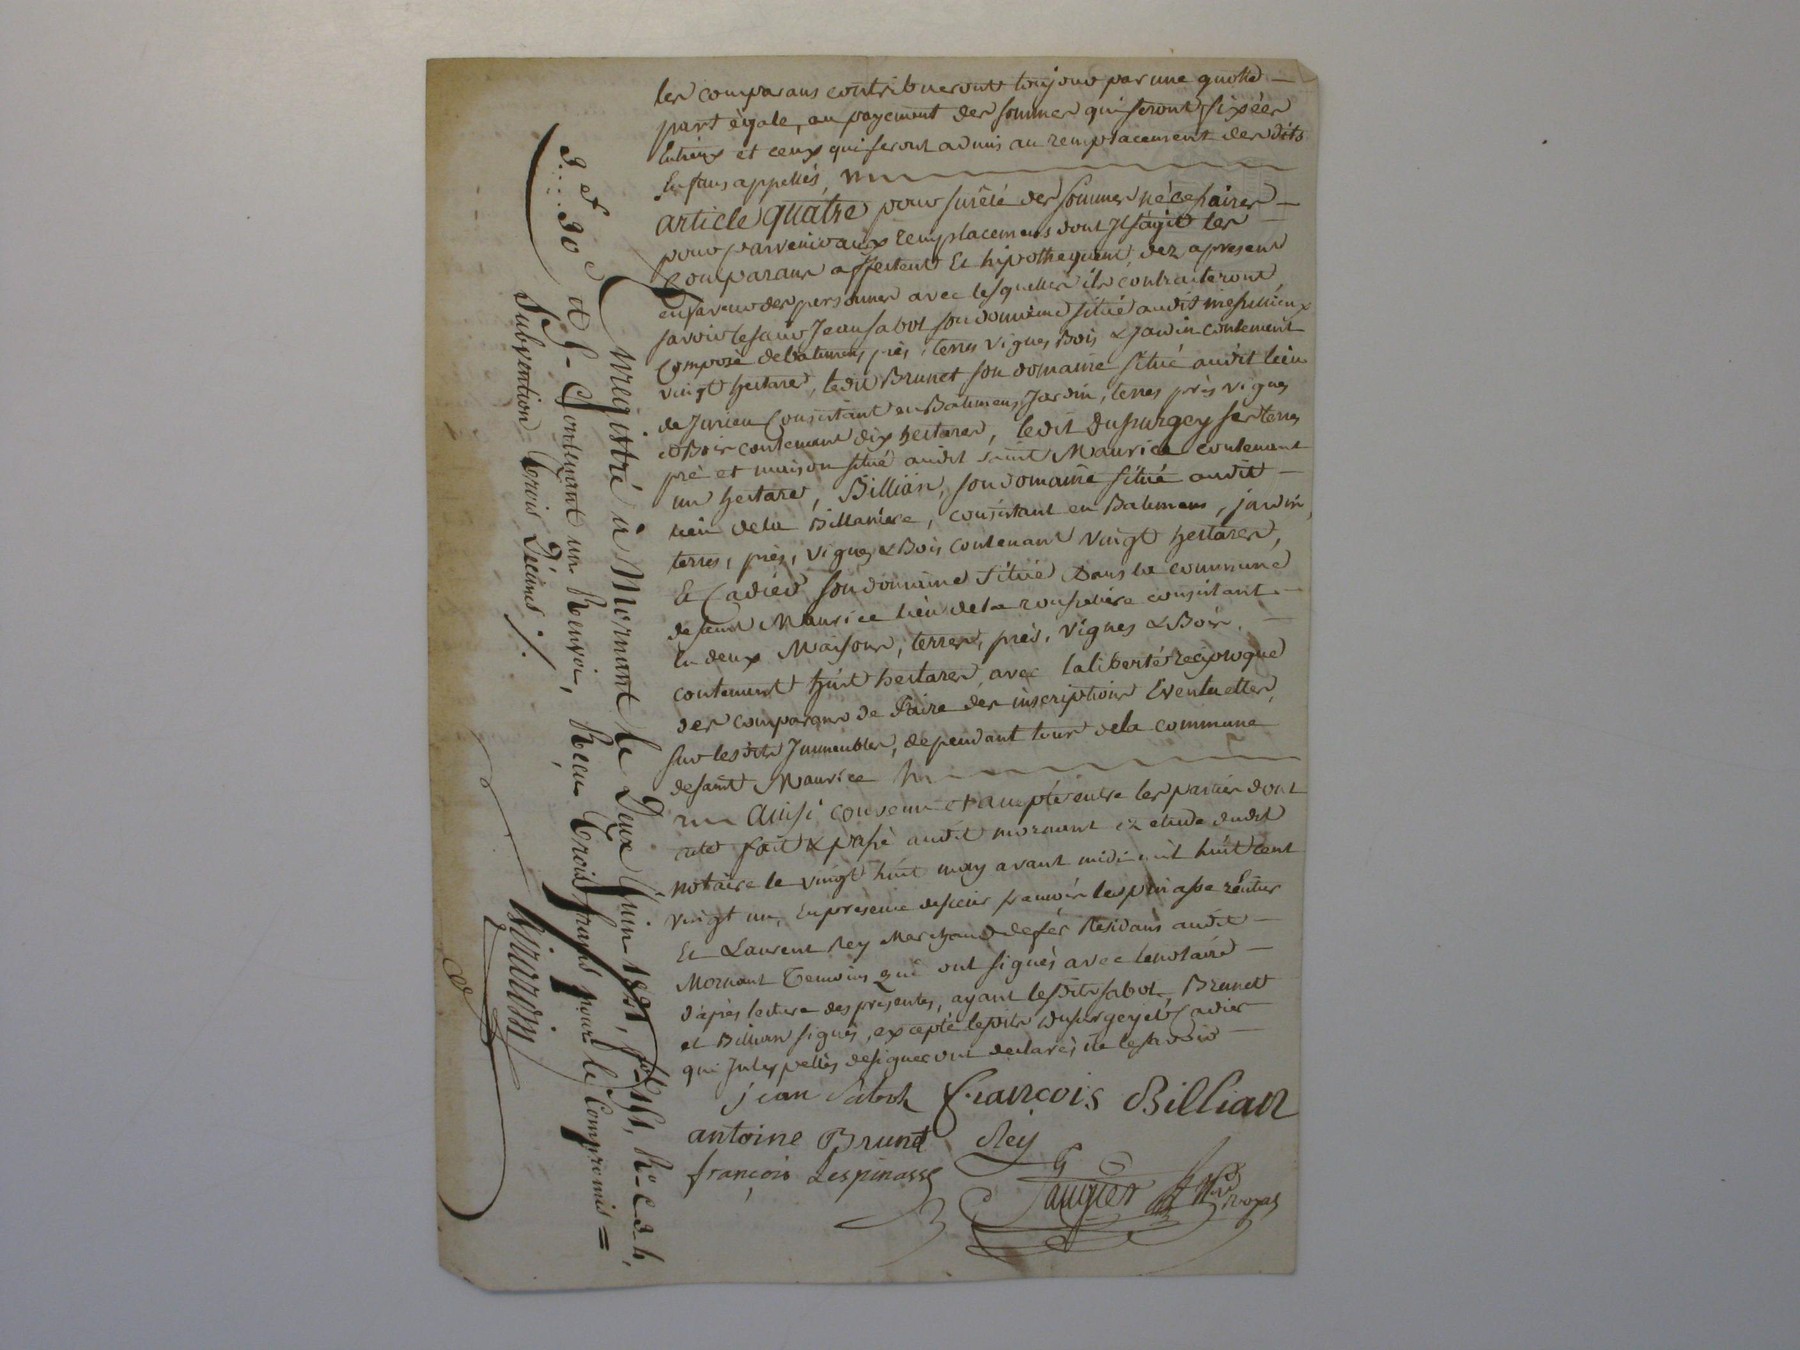 les comparans contribueront toujour par une quotte —
part égale, au payement des sommes qui seront fixées
entreux et ceux qui seront admis au remplacement des dits
Enfans appellés,
article quatre pour sureté des sommes nécessaires —
pour parvenir aux remplacemens dont Il sagit les
comparans affectent Et hipothequent dez apresent
en faveur des personnes avec lesquelles ils contracteront
savoir le sieur Jean Sabot son domaine situé audit
composé de batimens, prés, terres vignes Bois & Jardin contenant
vingt hectares, ledit Brunet, son domaine situé audit lieu
de Jurieu Consistant en Batimens, Jardin, terres prés vignes
et Bois contenant dix hectares, ledit Dupurgey ses terres
pré et maison situé audit saint Maurice contenant
un hectare, Billian, son domaine situé audit —
lieu de la Billaniere, consistant en Batimens, jardin,
terres, prés, vignes & Bois contenant vingt hectares,
Et Cadier son domaine situé Dans la commune
de saint Maurice lieu de la consistant —
En deux Maisons, terres, prés, vignes & Bois, —
contenant huit hectares, avec la liberté reciproque
des comparans de faire des inscriptions Eventuelles,
sur lesdits Immeubles, dependant tous de la commune
de saint Maurice
Ainsi convenu et accepté entre les parties dont
acte fait & passé audit mornant ez etude dudit
notaire le vingt huit may avant midi mil huit cent
vingt un, En presence de sieurs francois Lespinasse rentier
Et Laurent Rey Marchand de fer Residans audit —
Mornant Temoins qui ont signés avec le notaire —
d'après lecture des présentes, ayant lesdits sabot, Brunet
et Billian signés, excepté lesdits Dupurgey et Cadier
qui Interpellés de signer ont declarés ne le savoir —
jean Sabot François Billian
antoine Brunet Rey
françois Lespinasse
Enregistré à Mornant le Deux Juin 1821, fol. 151, Ro. C. 3 & 4,
et 5 - Contenant un Renvoi, Reçu Trois francs pour le Compromis =
3 . . . 30 c Subvention Trois Décimes ./.